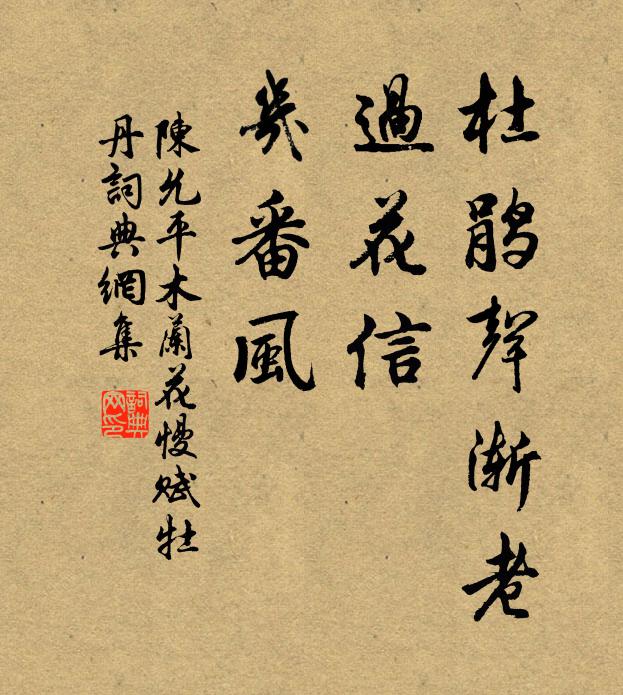 杜鹃聲漸老
過花信
幾番風
陳允平木蘭花慢賦牡
丹詞典網集
詞典
网印